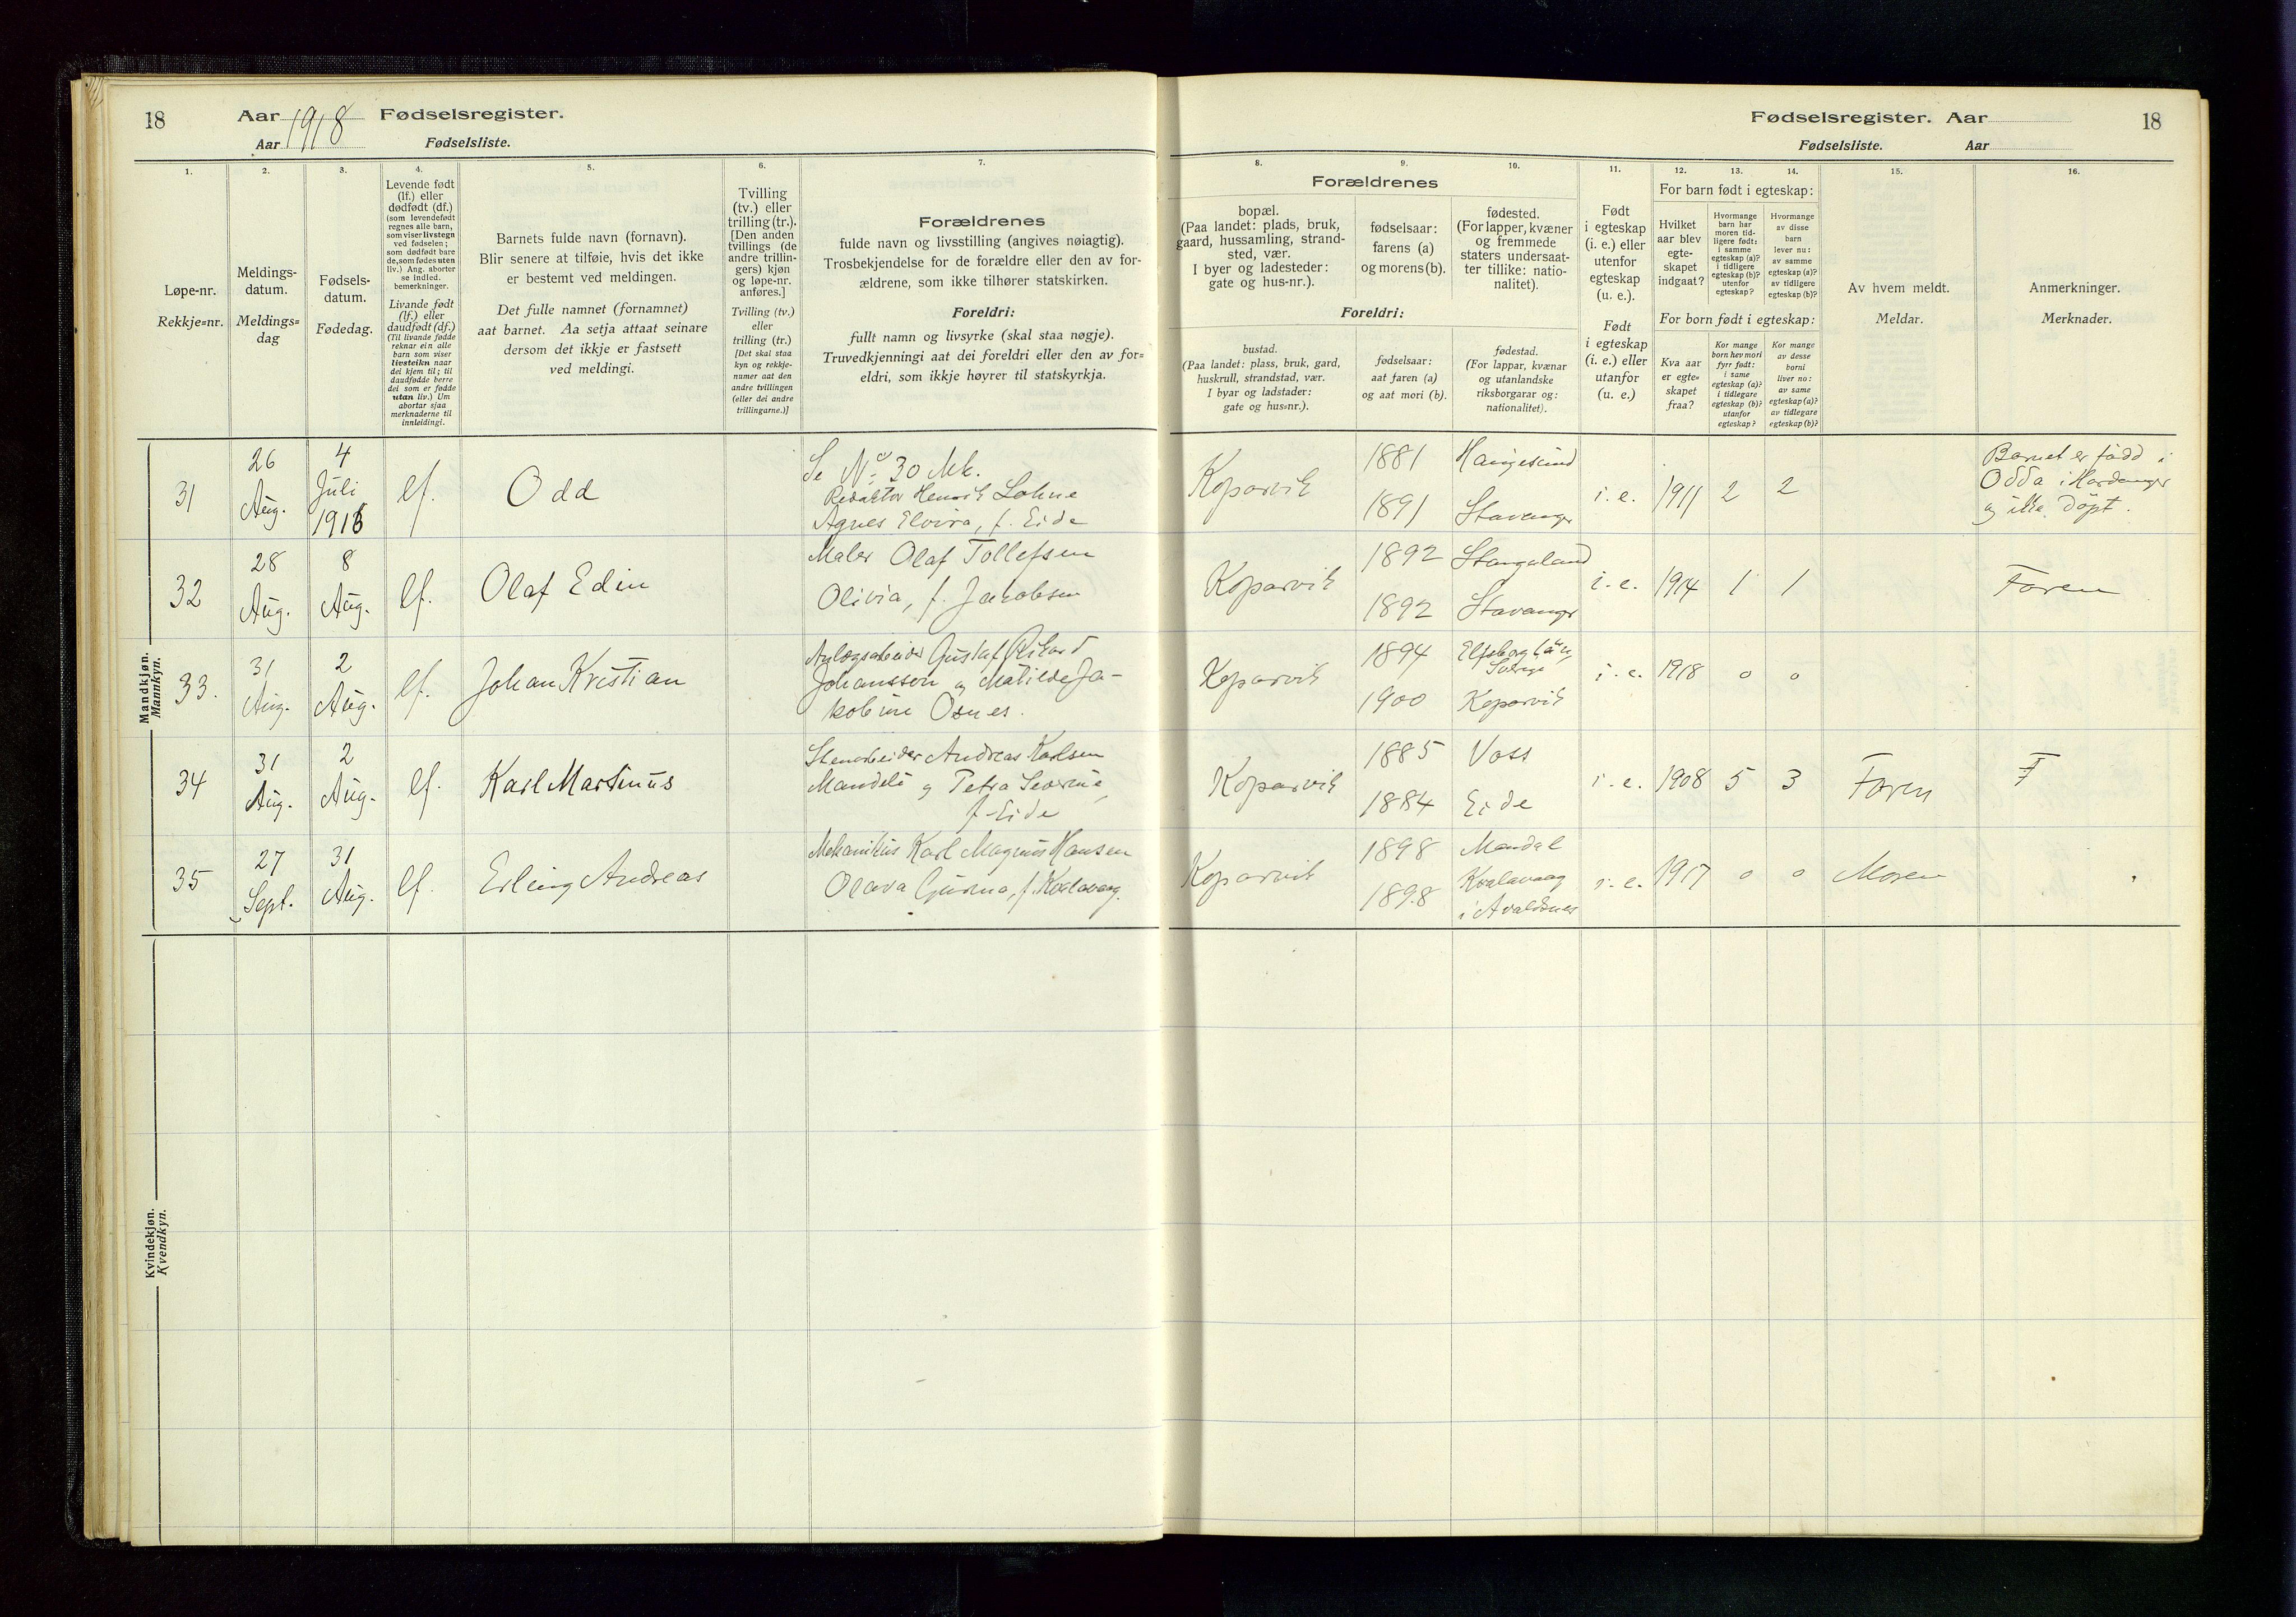 18
Aar 1918 Fødselsregister.
Aar Fødselsliste.
1.
Løpe-nr.
Rekkje=nr.
2.
Meldings-
datum.
Meldings=
dag
3.
Fødsels-
datum.
Fødedag.
4.
Levende født
(lf.) eller
dødfødt (df.)
(som levendefødt
regnes alle barn,
som viser livstegn
ved fødselen;
som dødfødt bare
de, som fødes uten
liv.) Ang. aborter
se indled.
bemerkninger.
Livande født
(lf.) eller
daudfødt (df.)
(Til livande fødde
reknar ein alle
barn som viser
livsteikn naar
dei kjem til; til
daudfødde berre
dei som er fødde
utan liv.) Um
abortar sjaa
merknaderne til
innleidingi.
5.
Barnets fulde navn (fornavn).
Blir senere at tilføie, hvis det ikke
er bestemt ved meldingen.
Det fulle namnet (fornamnet)
aat barnet. Aa setja attaat seinare
dersom det ikkje er fastsett
ved meldingi.
6.
Tvilling
(tv.) eller
trilling (tr.).
[Den anden
tvillings (de
andre trillin-
gers) kjøn
og løpe-nr.
anføres.]
Tvilling (tv.)
eller
trilling (tr.)
[Det skal staa
kyn og rekkje-
numer aat den
andre tvillingen
(eller dei andre
trillingarne.)]
7.
Forældrenes
fulde navn og livsstilling (angives nøiagtig).
Trosbekjendelse for de forældre eller den av for-
ældrene, som ikke tilhører statskirken.
Foreldri:
fullt namn og livsyrke (skal staa nøgje).
Truvedkjenningi aat dei foreldri eller den av for=
eldri, som ikkje høyrer til statskyrkja.
Fødselsregister. Aar
18
Fødselsliste. Aar
8.
Forældrenes
bopæl.
(Paa landet: plads, bruk,
gaard, hussamling, strand-
sted, vær.
I byer og ladesteder:
gate og hus-nr.).
Foreldri:
bustad.
(Paa landet: plass, bruk, gard,
huskrull, strandstad, vær.
I byar og ladstader:
gate og hus=nr.).
9.
fødselsaar:
farens (a)
og morens (b).
fødselsaar:
aat faren (a)
og aat mori (b).
10.
fødested.
(For lapper, kvæner
og fremmede
staters undersaat-
ter tillike: natio-
nalitet).
fødestad.
(For lappar, kvænar
og utanlandske
riksborgarar og:
nationalitet).
11.
Født
i egteskap
(i. e.) eller
utenfor
egteskap
(u. e.).
Født
i egteskap
(i. e.) eller
utanfor
(u. e.)
12.
13.
14.
For barn født i egteskap:
Hvilket
aar blev
egte-
skapet
indgaat?
Hvormange
barn har
moren tid-
ligere født:
i samme
egteskap (a)?
i tidligere
egteskap (b)?
utenfor
egteskap?
Hvormange
av disse
barn
lever nu:
av samme
egteskap (a)?
av tidligere
egteskap (b)?
For born født i egteskap:
Kva aar
er egte=
skapet
fraa?
Kor mange
born hev mori
fyrr født:
i same
egteskap (a)?
i tidlegare
egteskap (b)?
utanfor
egteskap?
Kor mange
av desse
borni
liver no:
av same
egteskap (a)?
av tidlegare
egteskap (b)?
15.
Av hvem meldt.
Meldar.
16.
Anmerkninger.
Merknader.
Mandkjøn.
Mannkyn.
31
26
Aug.
4
Juli
1916
lf.
Odd
Se No 30 Mk.
Redaktør Henrik Lohne
Agnes Elvira, f. Eide
Kopervik
1881 Haugesund
1891 Stavanger
i.e. 1911 2 2
Barnet er född i
Odda i Hardanger
og ikke döpt.
32
28
Aug.
8
Aug.
lf.
Olaf Edin
Maler Olaf Tollefsen
Olivia, f. Jakobsen
Kopervik
1892 Stangaland
1892 Stavanger
i.e. 1914 1 1
Faren
33.
31
Aug.
2
Aug.
lf.
Johan Kristian
Anlægsarbeider Gustaf Rikard
Johansson og Matilde Ja-
kobine Osnes.
Kopervik
1894 Elfsborg län,
Sverige
1900 Kopervik
i.e. 1918 0 0
34
31
Aug.
2
Aug.
lf.
Karl Martinus
Stenarbeider Andreas Karlsen
Mandeli og Petra Severine,
f. Eide
Kopervik
1885 Voss
1884 Eide
i.e. 1908 5 3
Faren
F
35
27
Sept.
31
Aug.
lf.
Erling Andreas
Mekanikus Karl Magnus Hansen
Olava Gurina, f. Kvalavaag.
Kopervik
1898 Mandal
1898 Kvalavaag
i Avaldsnes
i.e. 1917 0 0
Moren
Kvindekjøn.
Kvendkyn.